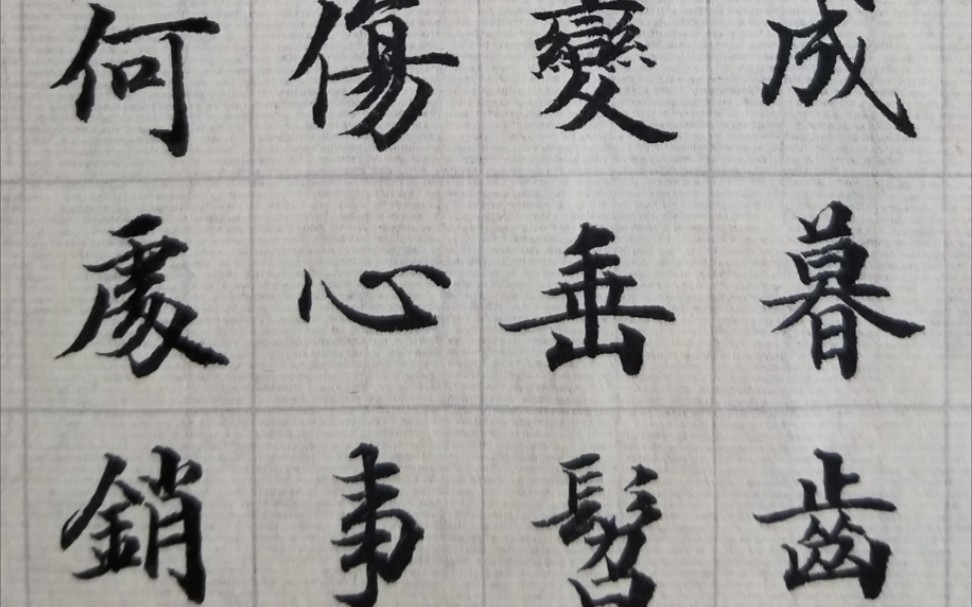 成暮齒
變垂髫
傷心事
何處銷